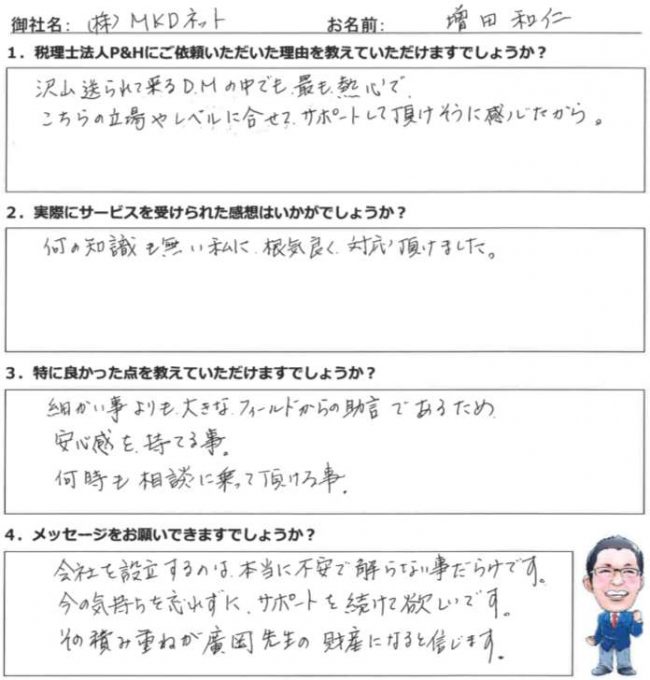 御社名: (株) MKDネット お名前: 増田 和仁
1．税理士法人P&Hにご依頼いただいた理由を教えていただけますでしょうか？
沢山送られて来るD.Mの中でも、最も、熱心で、
こちらの立場やレベルに合せて、サポートして頂けそうに感んじたから。
2．実際にサービスを受けられた感想はいかがでしょうか？
何の知識も無い私に、根気良く、対応頂けました。
3．特に良かった点を教えていただけますでしょうか？
細かい事よりも、大きな、フィールドからの助言であるため、
安心感を、持てる事。
何時も相談に乗って頂ける事。
4．メッセージをお願いできますでしょうか？
会社を設立するのは、本当に不安で解らない事だらけです。
今の気持ちを忘れずに、サポートを続けて欲しいです。
その積み重ねが廣岡先生の財産になると信じます。